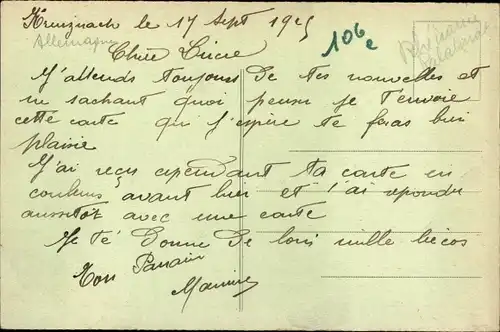 Kreuznach le 17 Sept 192
Allemagne
106
Chère Lucie
J'attends toujours de tes nouvelles et
ne sachant quoi penser je t'envoie
cette carte qui j'espère te feras bien
plaisir
J'ai reçu cependant ta carte en
couleurs avant hier et j'ai repondu
aussitot avec une carte
Je te donne de loin mille becos
Ton Parrain
Maurice